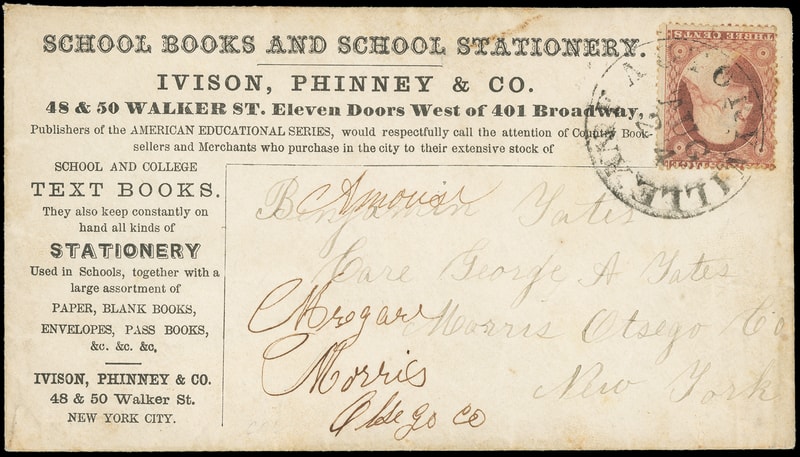 SCHOOL BOOKS AND SCHOOL STATIONERY.
IVISON, PHINNEY & CO.
48 & 50 WALKER ST. Eleven Doors West of 401 Broadway,
Publishers of the AMERICAN EDUCATIONAL SERIES, would respectfully call the attention of Country Book-
sellers and Merchants who purchase in the city to their extensive stock of
SCHOOL AND COLLEGE
TEXT BOOKS.
They also keep constantly on
hand all kinds of
STATIONERY
Used in Schools, together with a
large assortment of
PAPER, BLANK BOOKS,
ENVELOPES, PASS BOOKS,
&c. &c. &c,
IVISON, PHINNEY & CO.
48 & 50 Walker St.
NEW YORK CITY.
THREE CENTS
Benjamin Yates
Care George A Yates
Morris Otsego Co
New York
Morris
Otsego co